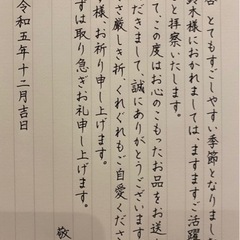 とてもすごしやすい季節となりまし
木様におかれましては、ますますご活躍
と拝察いたします。
て、この度はお心のこもったお品をお送
だきまして、誠にありがとうございます
さ厳しき折、くれぐれもご自愛くださ
様、お祈り申し上げます。
ずは取り急ぎお礼申し上げます。
敬
令和五年十二月吉日